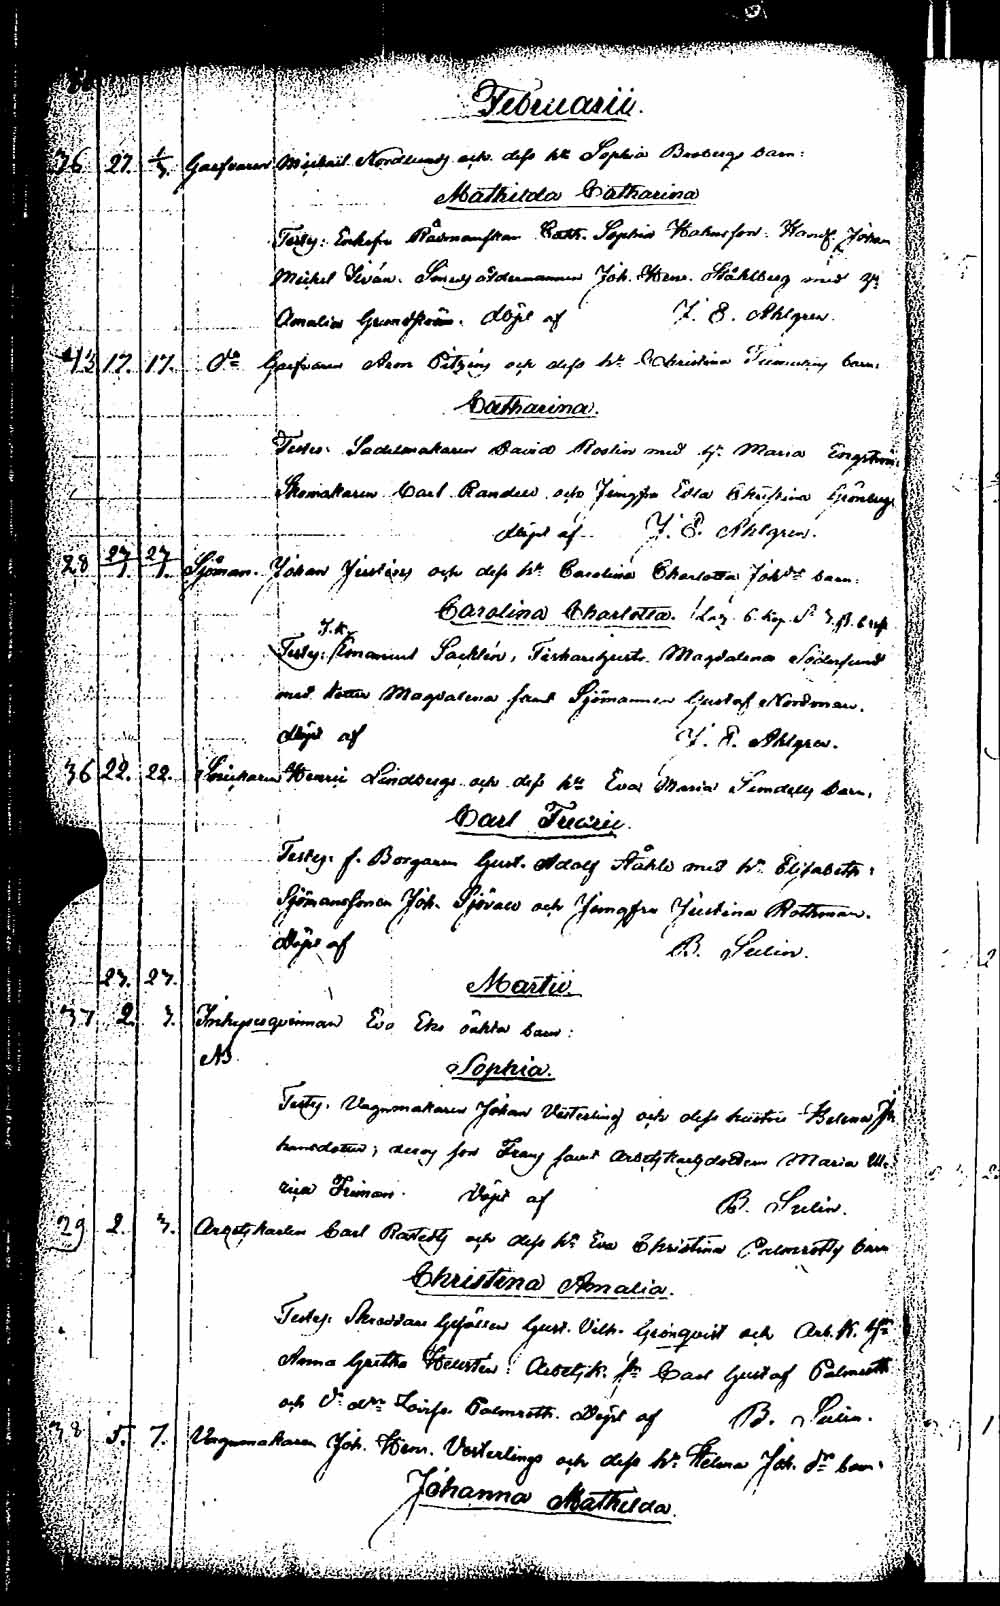 Februarii.
36 27. 1/3. Garfvaren Michael Nordlunds och dess hu Sophia Brobergs barn:
Mathilda Catharina
Testes: Enkefru Rådmanskan Cath. Sophia Hakensson. Handl. Johan
Michel Siván. Smedsåldermannen Joh. Henr. Ståhlberg med
Amalia Grundström. Döpt af J. E. Ahlgren.
43 17. 17. Do Garfvaren Aron Pitzéns och dess hu Christina barn:
Catharina.
Testes: Sadelmakaren David Roslin med Maria Engström
Skomakaren Carl Randell och Jungfru Edla Christina Grönberg
döpt af J. E. Ahlgren.
28 27/1. 27/1. Sjöman. Johan och dess hu Carolina Charlotta Johdr barn:
Carolina Charlotta.
Testes: Emanuel Sacklén, Magdalena Söderlund
med dotter Magdalena samt Sjömannen Gustaf Nordman.
döpt af J. E. Ahlgren.
36 22. 22. Snickaren Henric Lindbergs och dess hu Eva Maria barn:
Carl Fredric.
Testes: f. Borgaren Gust. Adolf Ståhle med hu Elisabeth:
Sjömanssonen Joh. Sjövall och Jungfru Justina Rothman.
Döpt af B. Selin.
27. 27. Martii
37 2. 3. Inhysesqvinnan Eva Eks oäkta barn:
NB Sophia.
Testes: Vagnmakaren Johan Vesterling och dess hustru Helena Jo
hansdotter; deras son Frans samt Arbetskarlsdottern Maria Ul
rica Friman. Döpt af B. Selin.
29 2. 3. Arbetskarlen Carl och dess hu Eva Christina Palmroths barn
Christina Amalia.
Testes: Skräddare Gesällen Gust. Vilh. Grönqvist och Arb. K.
Anna Gretha Arbetsk. Carl Gustaf Palmroth
och Lovisa Palmroth. Döpt af B. Selin.
38 5. 7. Vagnmakaren Joh. Henr. Vesterlings och dess hu Helena Joh. dr barn:
Johanna Mathilda.